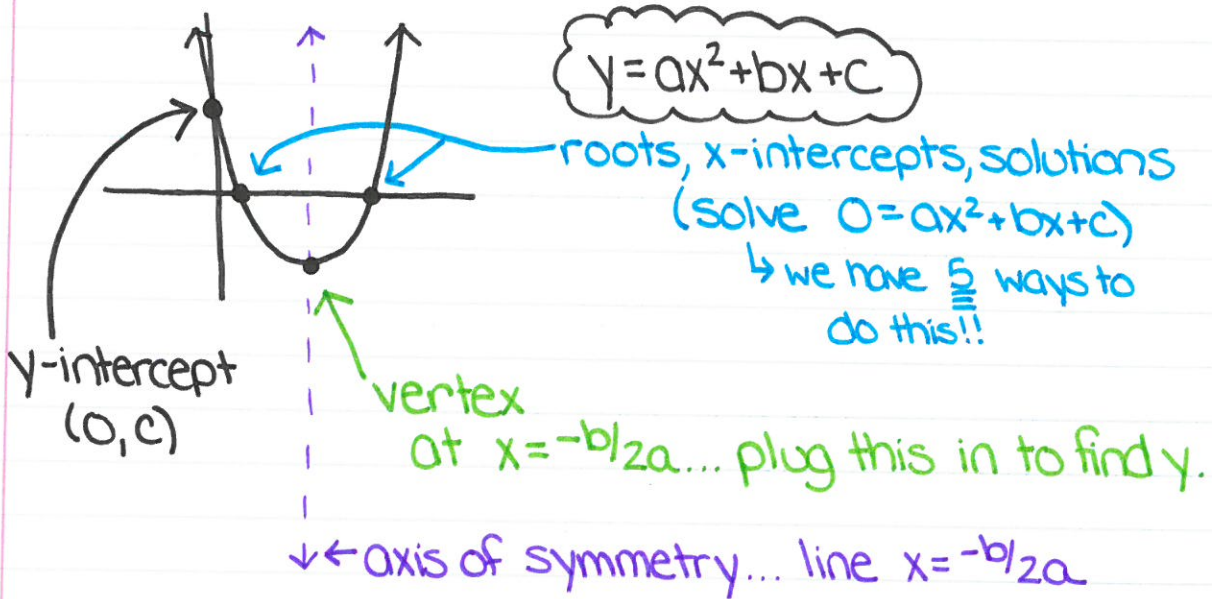 y=ax²+bx+c
roots, x-intercepts, solutions
(solve 0=ax²+bx+c)
↳ we have 5 ways to
do this!!
y-intercept
(0,c)
vertex
at x=-b/2a... plug this in to find y.
←axis of symmetry... line x=-b/2a